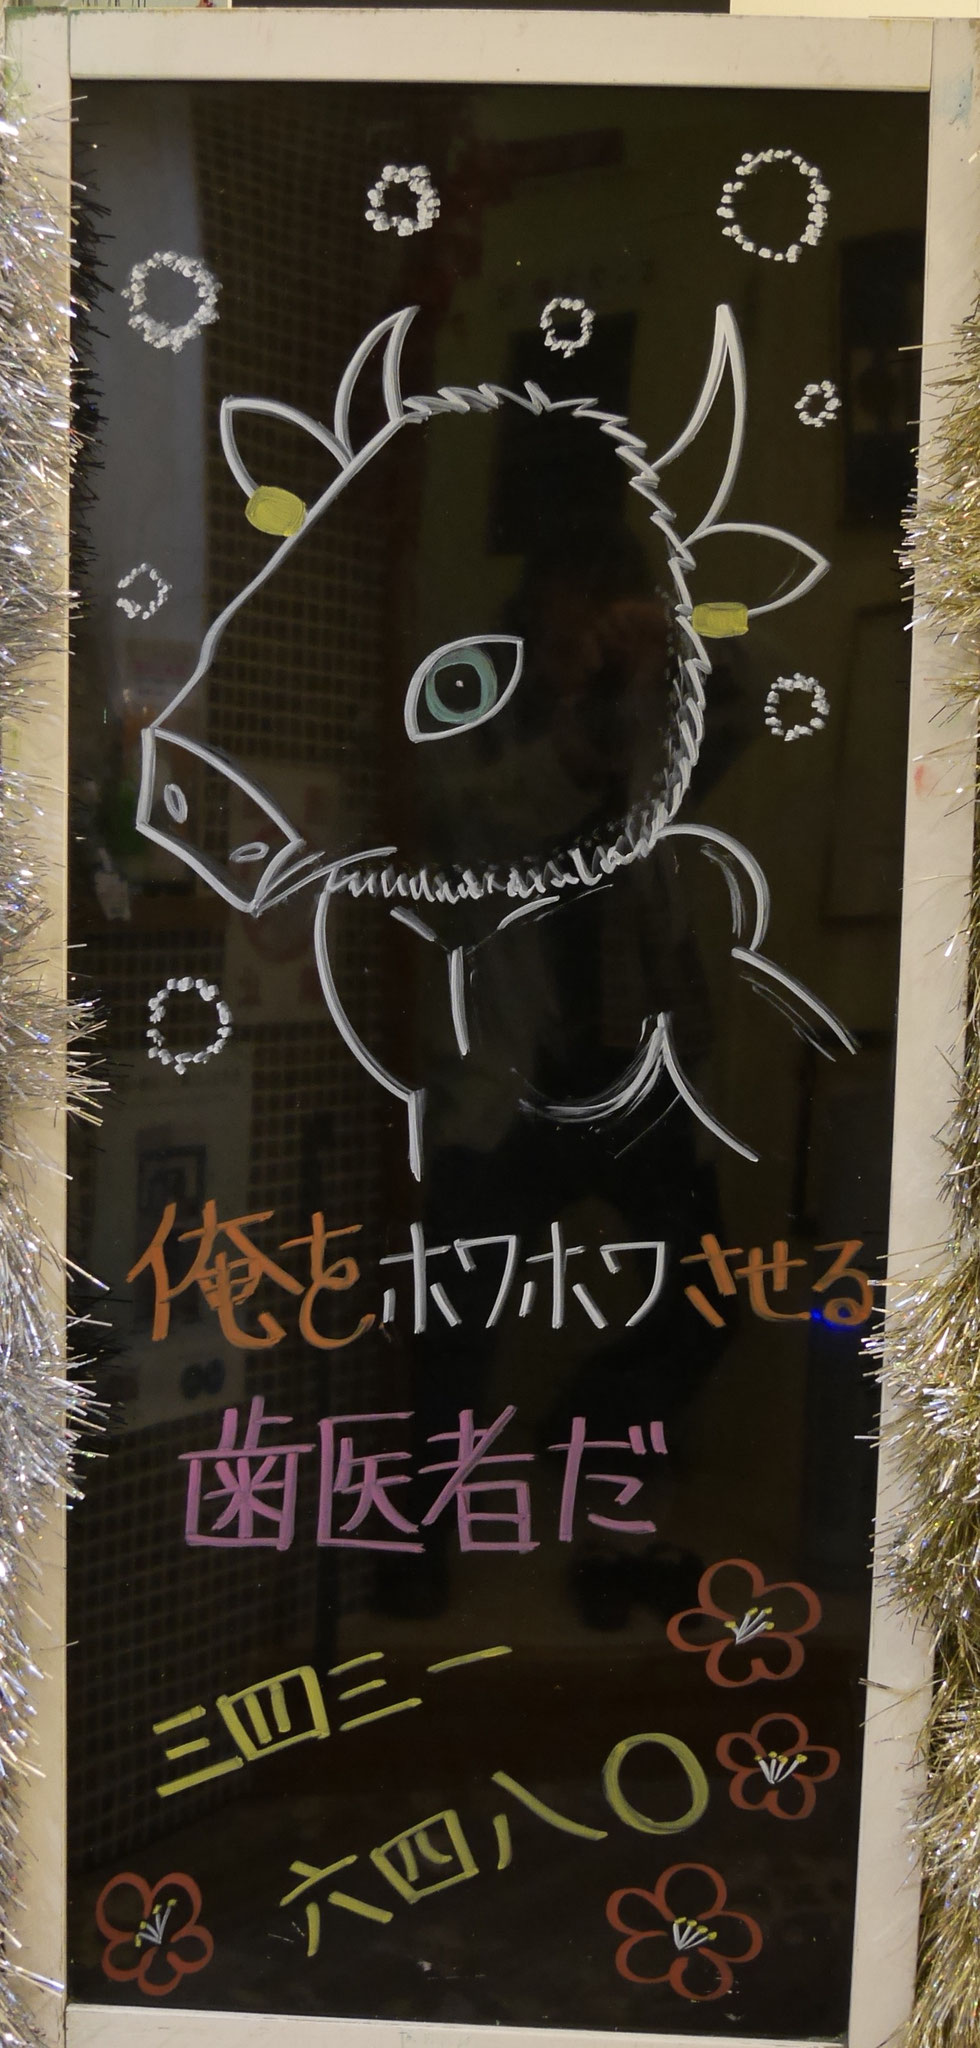 俺をホワホワさせる
歯医者だ
三四三一
六四八〇